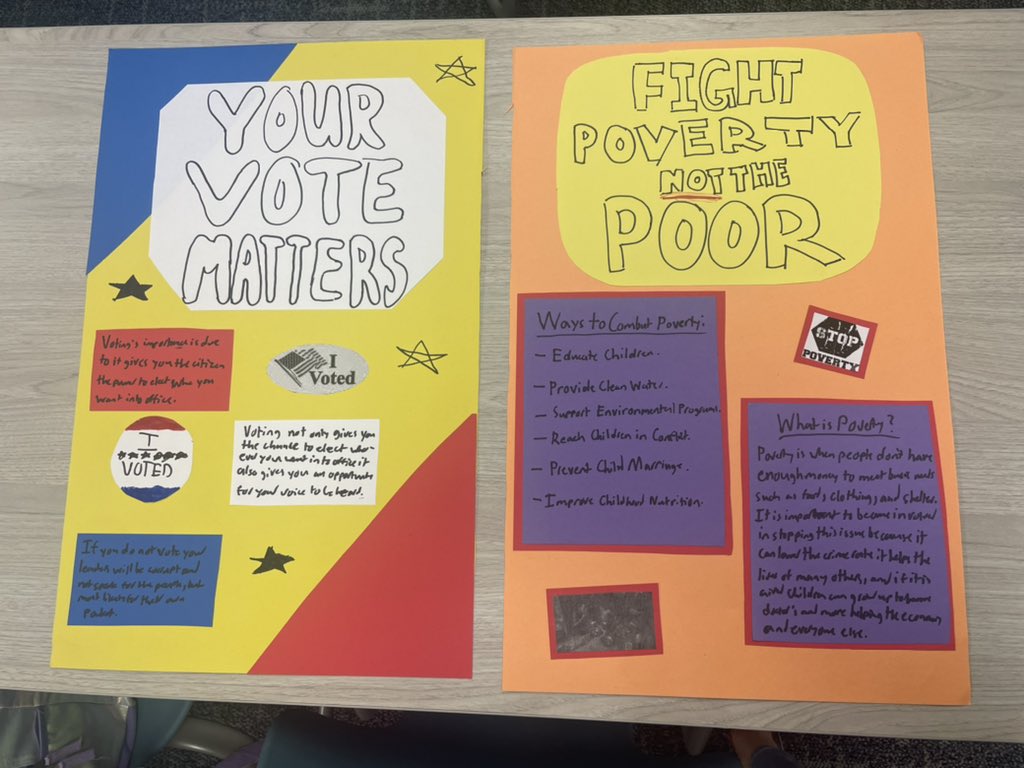 YOUR
VOTE
MATTERS
Voting's importance is due
to it gives you the citizen
the power to elect who you
want into office.
I
Voted
I
VOTED
Voting not only gives you
the chance to elect who-
ever you want into office it
also gives you an opportunity
for your voice to be heard.
If you do not vote your
leaders will be corrupt and
not speak for the people, but
most likely for their own
FIGHT
POVERTY
NOT THE
POOR
Ways to Combat Poverty:
- Educate Children.
- Provide Clean Water.
- Support Environmental Programs.
- Reach Children in Conflict.
- Prevent Child Marriage.
- Improve Childhood Nutrition.
STOP
POVERTY
What is Poverty?
Poverty is when people don't have
enough money to meet basic needs
such as food, clothing, and shelter.
It is important to become involved
in stopping this issue because it
can lower the crime rate it helps the
lives of many others, and if it is
children can grow up to become
doctor's and more helping the economy
and everyone else.